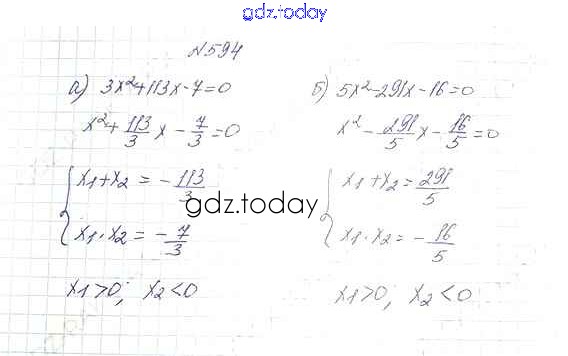 gdz.today
№594
а) 3x²+113x-7=0
x²+113/3x-7/3=0
{x₁+x₂=-113/3
x₁·x₂=-7/3
x₁>0; x₂<0
gdz.today
б) 5x²-291x-16=0
x²-291/5x-16/5=0
{x₁+x₂=291/5
x₁·x₂=-16/5
x₁>0; x₂<0